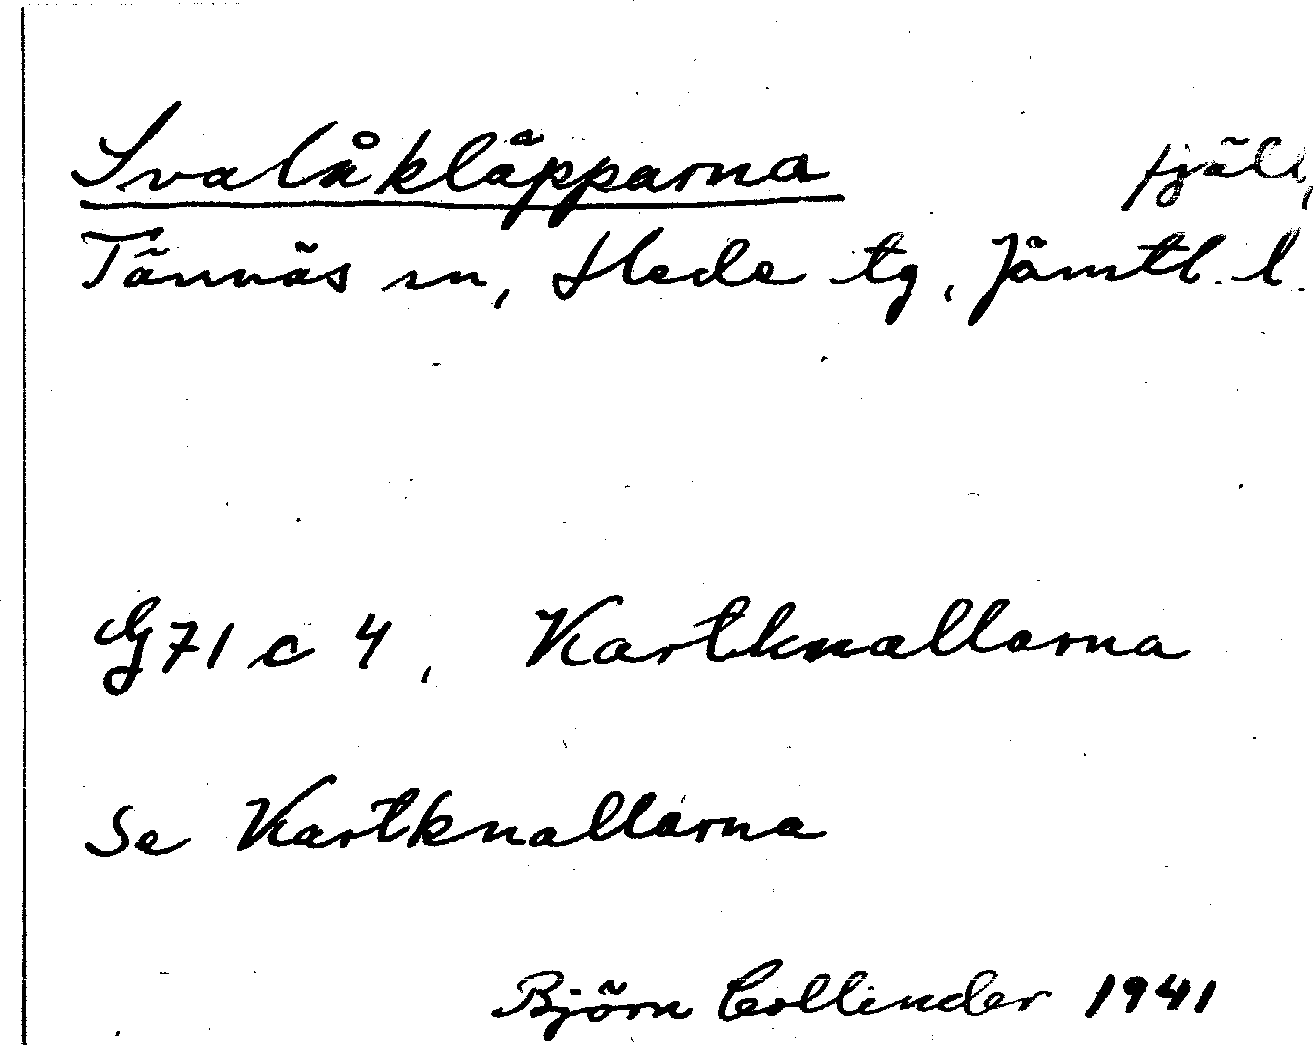 Svalåkläpparna fjäll,
Tännäs sn, Hede tg, Jämtl. l.
G 71 c 4, Kartknallarna
Se Kartknallarna
Björn Collinder 1941